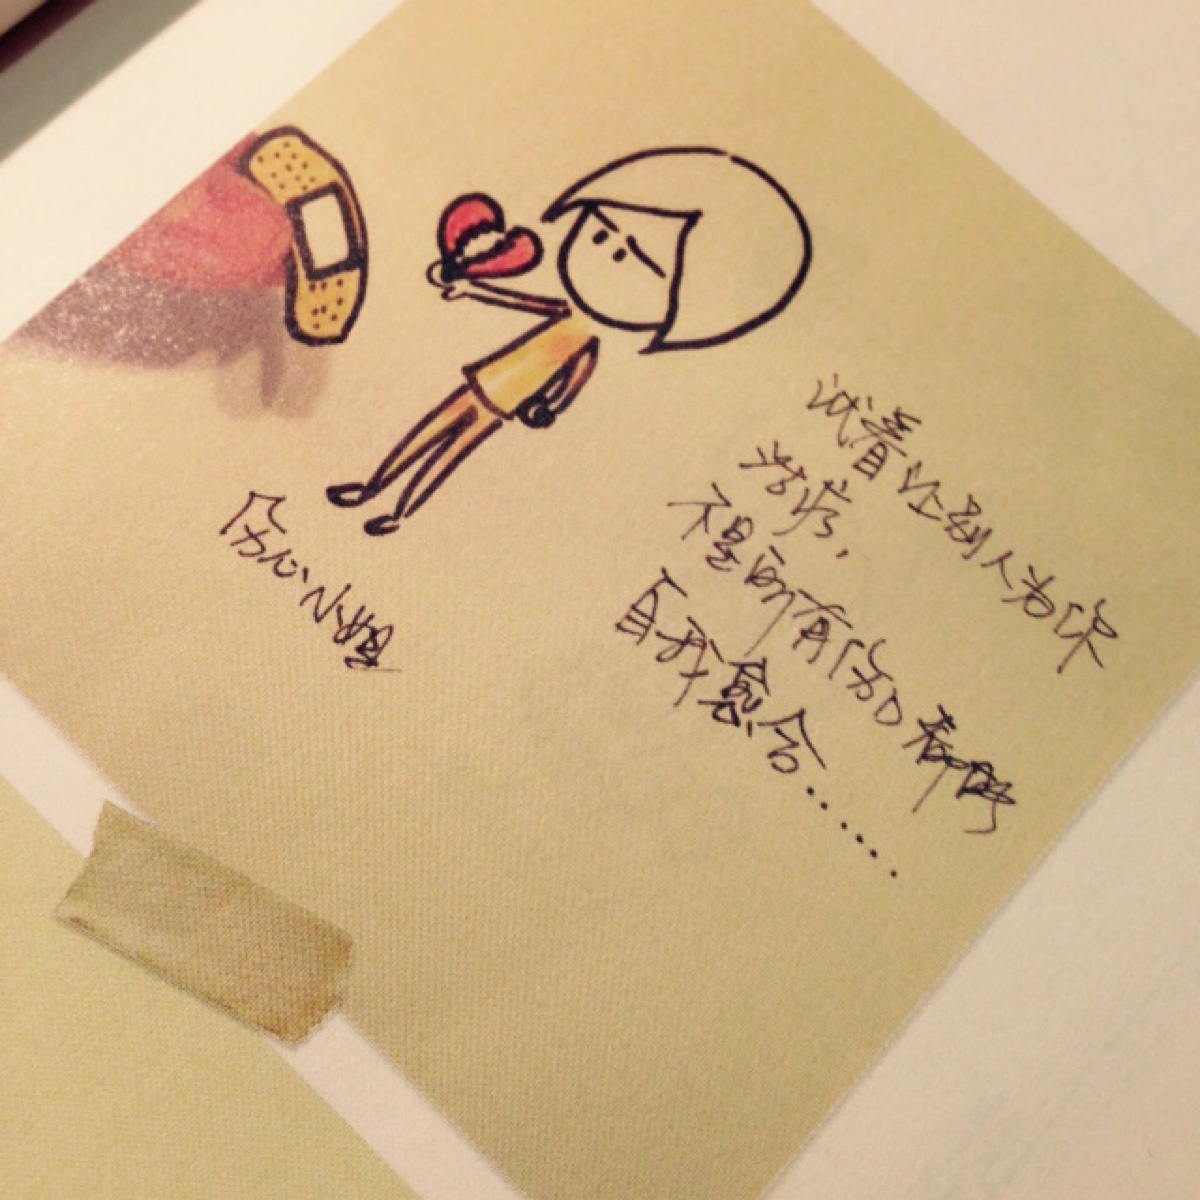 伤心小姐
试着让别人为你
治疗,
不是所有伤口都能
自我愈合......